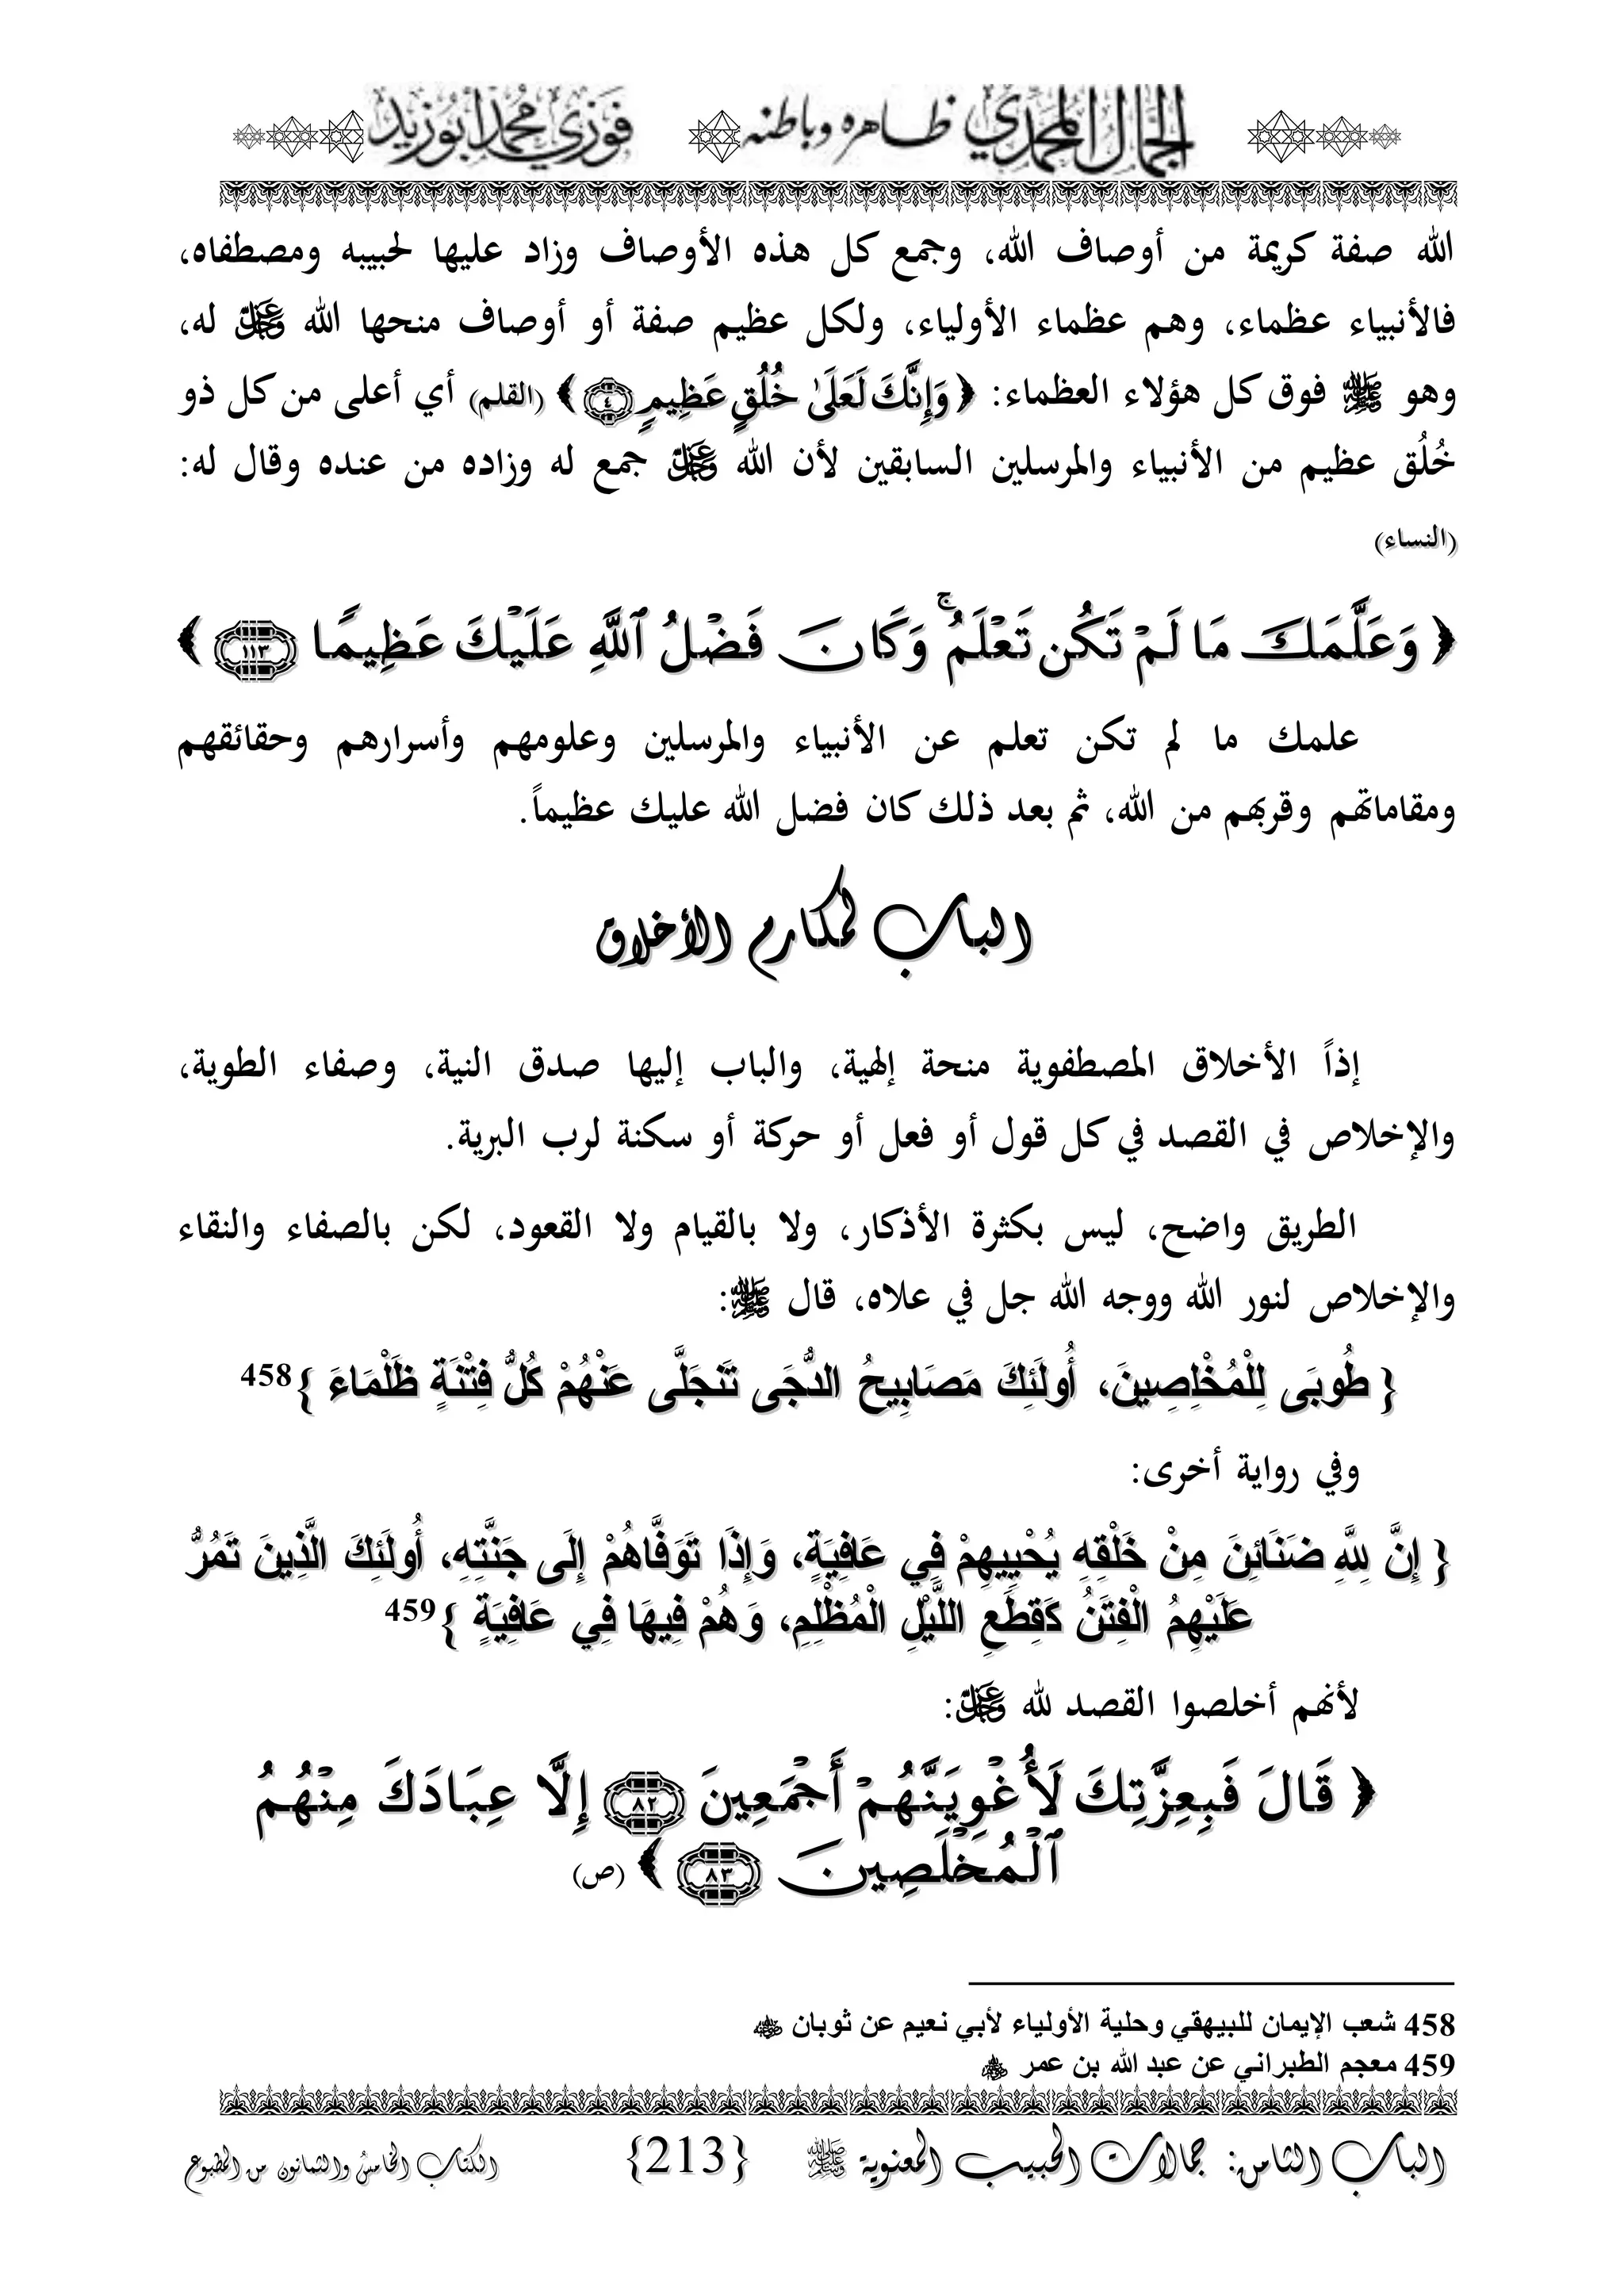 الجمال المحمدي ظاهره وباطنه فوزي محمد أبوزيد
الله صفة كريمة من أوصاف الله، وجمع كل هذه الأوصاف وزاد عليها لحبيبه ومصطفاه،
فالأنبياء عظماء، وهم عظماء الأولياء، ولكل عظيم صفة أو أوصاف منحها الله عز وجل له،
وهو ﷺ فوق كل هؤلاء العظماء: ﴿ وَإِنَّكَ لَعَلَىٰ خُلُقٍ عَظِيمٍ ٤ ﴾ (القلم) أي أعلى من كل ذو
خُلُق عظيم من الأنبياء والمرسلين السابقين لأن الله عز وجل جمع له وزاده من عنده وقال له:
(النساء)
﴿ وَعَلَّمَكَ مَا لَمْ تَكُن تَعْلَمُ ۚ وَكَانَ فَضْلُ ٱللَّهِ عَلَيْكَ عَظِيمًا ١١٣ ﴾
علمك ما لم تكن تعلم عن الأنبياء والمرسلين وعلومهم وأسرارهم وحقائقهم
ومقاماتهم وقربهم من الله، ثم بعد ذلك كان فضل الله عليك عظيماً.
الباب لمكارم الأخلاق
إذاً الأخلاق المصطفوية منحة إلهية، والباب إليها صدق النية، وصفاء الطوية،
والإخلاص في القصد في كل قول أو فعل أو حركة أو سكنة لرب البرية.
الطريق واضح، ليس بكثرة الأذكار، ولا بالقيام ولا القعود، لكن بالصفاء والنقاء
والإخلاص لنور الله ووجه الله جل في علاه، قال ﷺ:
{ طُوبَى لِلْمُخْلِصِينَ، أُولَئِكَ مَصَابِيحُ الدُّجَى تَنَجَلَّى عَنْهُمْ كُلُّ فِتْنَةٍ ظَلْمَاءَ }458
وفي رواية أخرى:
{ إِنَّ لِلَّهِ ضَنَائِنَ مِنْ خَلْقِهِ يُحْيِيهِمْ فِي عَافِيَةٍ، وَإِذَا تَوَفَّاهُمْ إِلَى جَنَّتِهِ، أُولَئِكَ الَّذِينَ تَمُرُّ
عَلَيْهِمُ الْفِتَنُ كَقِطَعِ اللَّيْلِ الْمُظْلِمِ، وَهُمْ فِيهَا فِي عَافِيَةٍ }459
لأنهم أخلصوا القصد لله عز وجل:
﴿ قَالَ فَبِعِزَّتِكَ لَأُغْوِيَنَّهُمْ أَجْمَعِينَ ٨٢ إِلَّا عِبَادَكَ مِنْهُمُ
ٱلْمُخْلَصِينَ ٨٣ ﴾ (ص)
458 شعب الإيمان للبيهقي وحلية الأولياء لأبي نعيم عن ثوبان رضي الله عنه
459 معجم الطبراني عن عبد الله بن عمر رضي الله عنه
الباب الثامن: جمالات الحبيب المعنوية ﷺ {213} الكتاب الخامس والثمانون من المطبوع